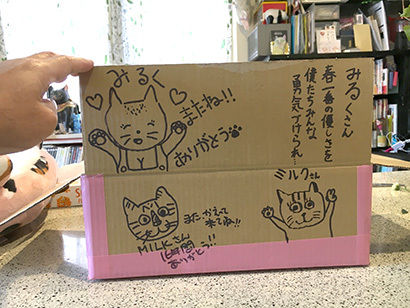 みるく
またね!!
ありがとう
みるくさん
春一番の優しさを
僕たちみんな
勇気づけられ
また かえって
来てね!!
MILKさん
16年間
ありがとう!!
ミルクさん